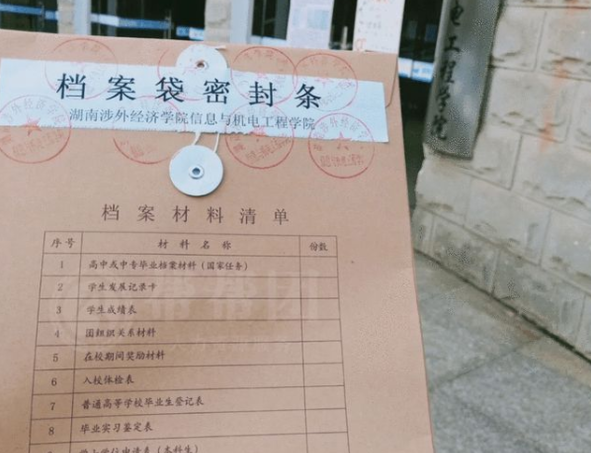 档案袋密封条
湖南涉外经济学院信息与机电工程学院
档案材料清单
序号 材料名称 份数
1 高中或中专毕业档案材料（国家任务）
2 学生发展记录卡
3 学生成绩表
4 团组织关系材料
5 在校期间奖励材料
6 入校体检表
7 普通高等学校毕业生登记表
8 毕业实习鉴定表
电工程学院